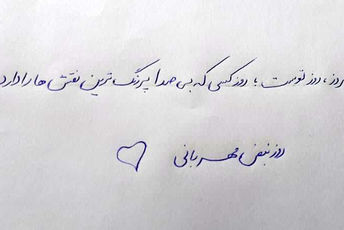 روز، روز توست ؛ روز کسی که بی صدا پررنگ ترین نقش ها را دارد
روز نبض مهربانی